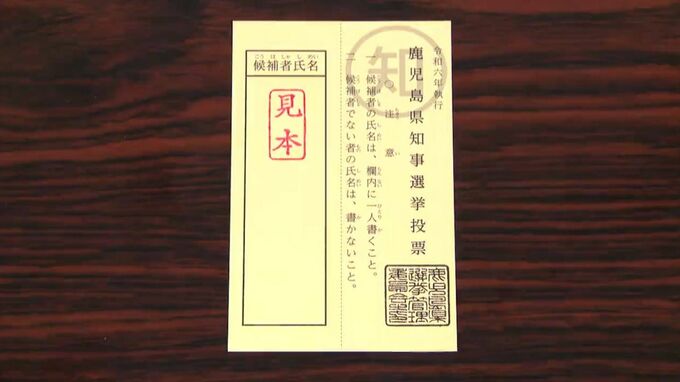 令和六年執行
鹿児島県知事選挙投票
知
○注意
ちゅうい
一 候補者の氏名は、欄内に一人書くこと。
二 候補者でない者の氏名は、書かないこと。
こうほしゃしめい
候補者氏名
見本
鹿児島県
選挙管理
委員会印